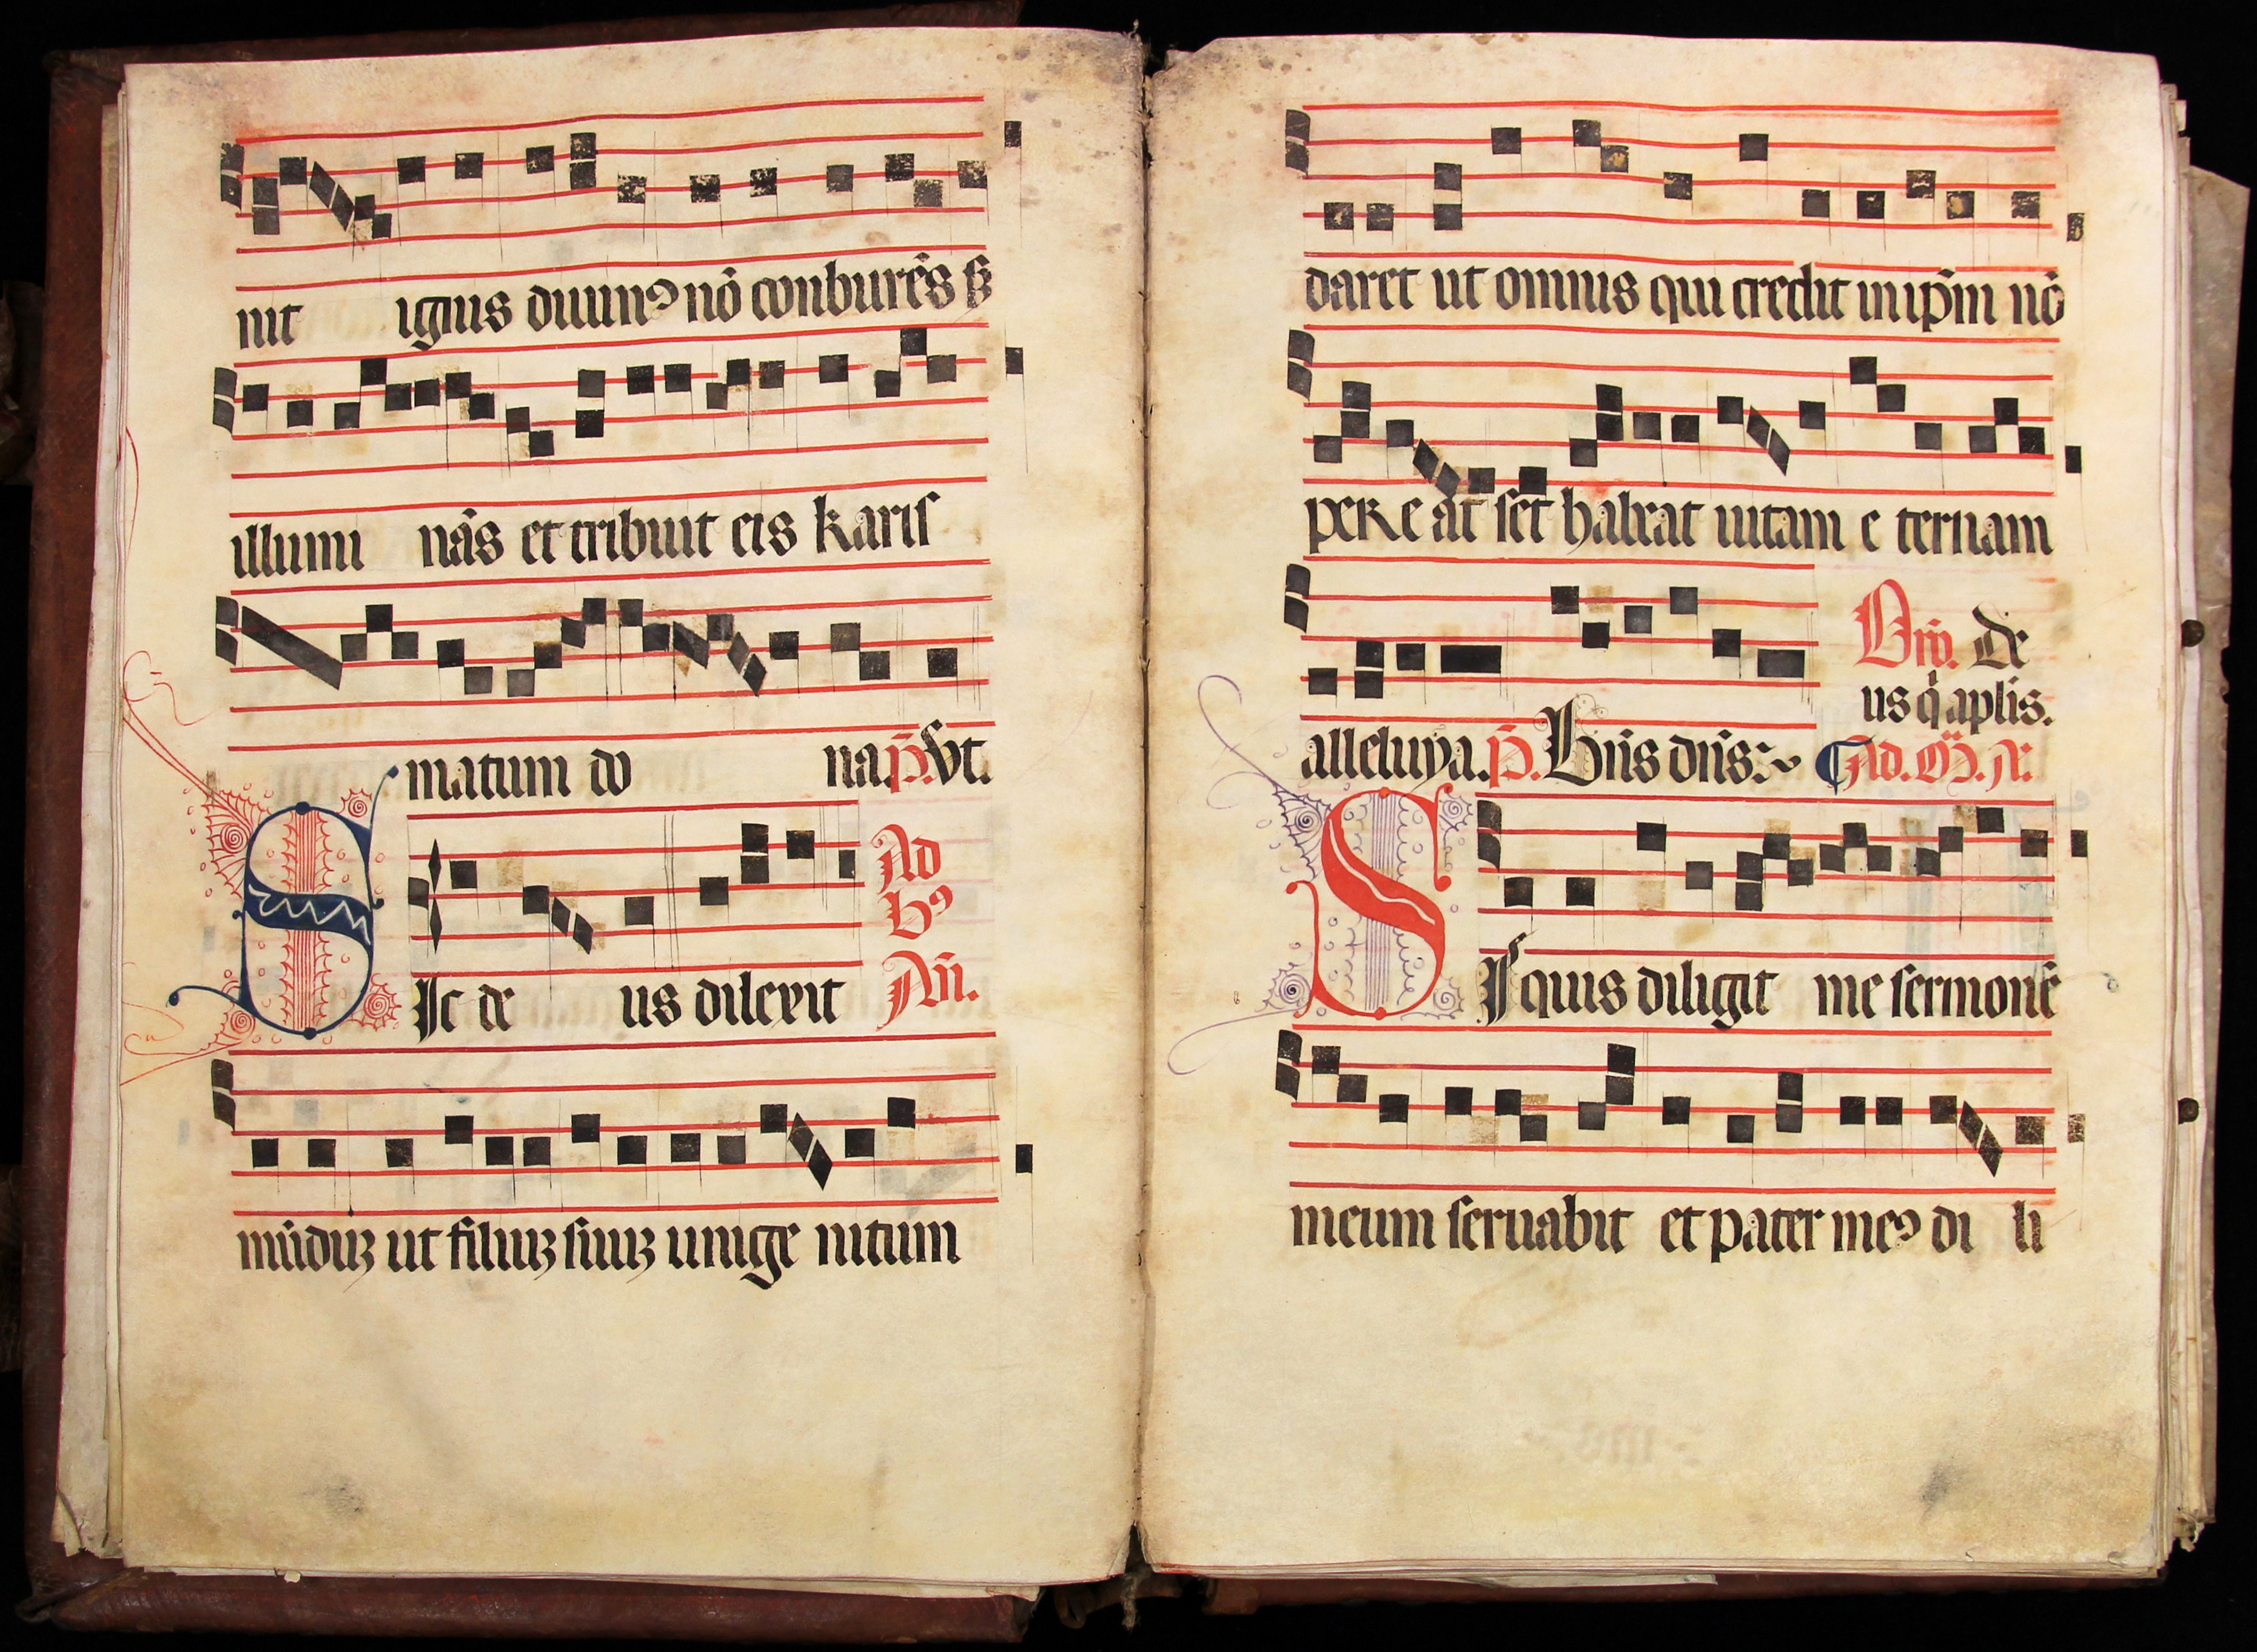 nit ignis diuinꝯ nō conburēs ſꝫ
illumi nās et tribuit eis kariſ
matum do na. p̄. Vt.
SIc de us dilexit Ad bꝯ Añ.
mūduꝫ ut filiuꝫ suuꝫ unige nitum
daret ut omnis qui credit in ip̄m nō
pere at set habeat uitam e ternam
alleluya. p̄. Bn̄s dn̄s: Orō. de
us q̇ aplis.
Ad. M̄. R.
SI quis diligit me sermonē
meum seruabit et pater meꝯ di li